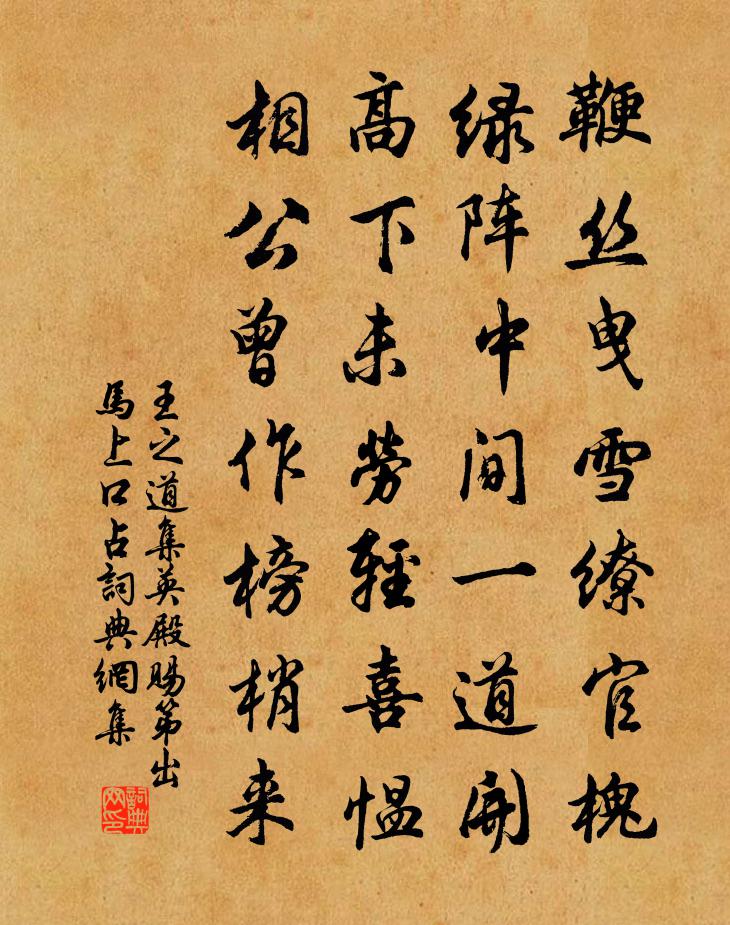 鞭丝曳雪缭官槐
绿阵中间一道開
高下未劳輕喜愠
相公曾作榜梢来
王之道集英殿賜第出
馬上口占詞典網集
詞典网印